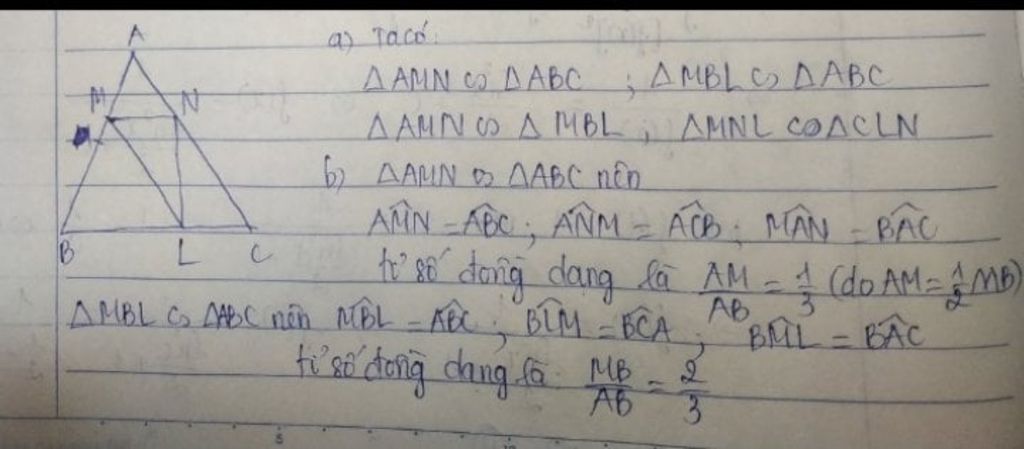 A
M N
B L C
a) Ta có:
△AMN ∽ △ABC ; △MBL ∽ △ABC
△AMN ∽ △MBL ; △MNL ∽ △CLN
b) △AMN ∽ △ABC nên
AM̂N = AB̂C ; AN̂M = AĈB ; MÂN = BÂC
tỉ số đồng dạng là AM/AB = 1/3 (do AM = 1/2 MB)
△MBL ∽ △ABC nên MB̂L = AB̂C ; BL̂M = BĈA ; BM̂L = BÂC
tỉ số đồng dạng là MB/AB = 2/3
5
10